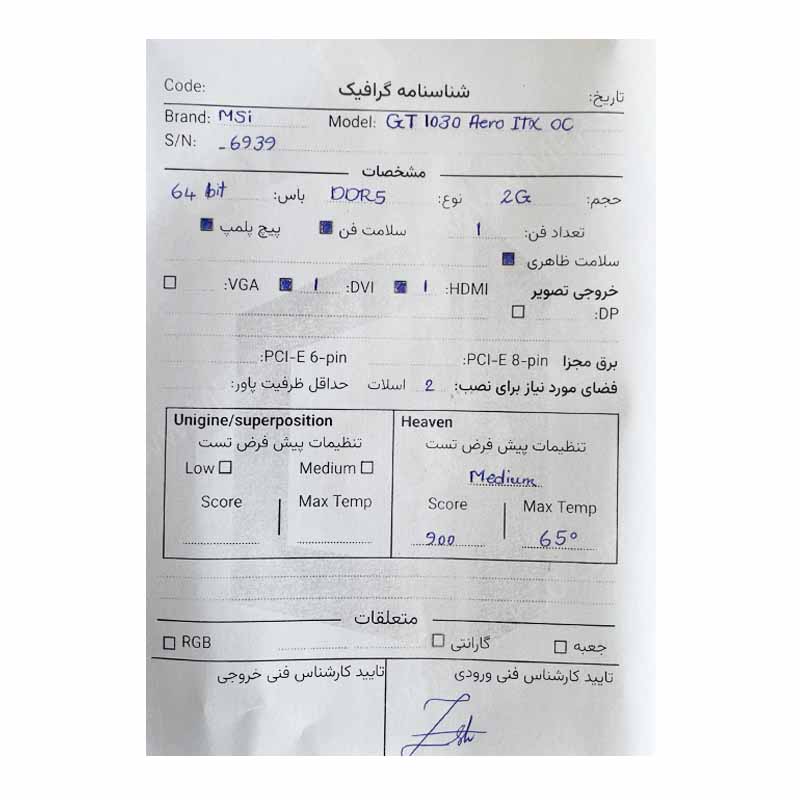 Code: شناسنامه گرافیک تاریخ:
Brand: MSi Model: GT 1030 Aero ITX OC
S/N: _6939
مشخصات
حجم: 2G نوع: DDR5 باس: 64 bit
تعداد فن: 1 سلامت فن پیچ پلمپ
سلامت ظاهری
خروجی تصویر HDMI: 1 DVI: 1 VGA:
DP:
برق مجزا PCI-E 8-pin: PCI-E 6-pin:
فضای مورد نیاز برای نصب: 2 اسلات حداقل ظرفیت پاور:
Unigine/superposition Heaven
تنظیمات پیش فرض تست تنظیمات پیش فرض تست
Low Medium Medium
Score Max Temp Score Max Temp
900 65°
متعلقات
جعبه گارانتی RGB
تایید کارشناس فنی ورودی تایید کارشناس فنی خروجی